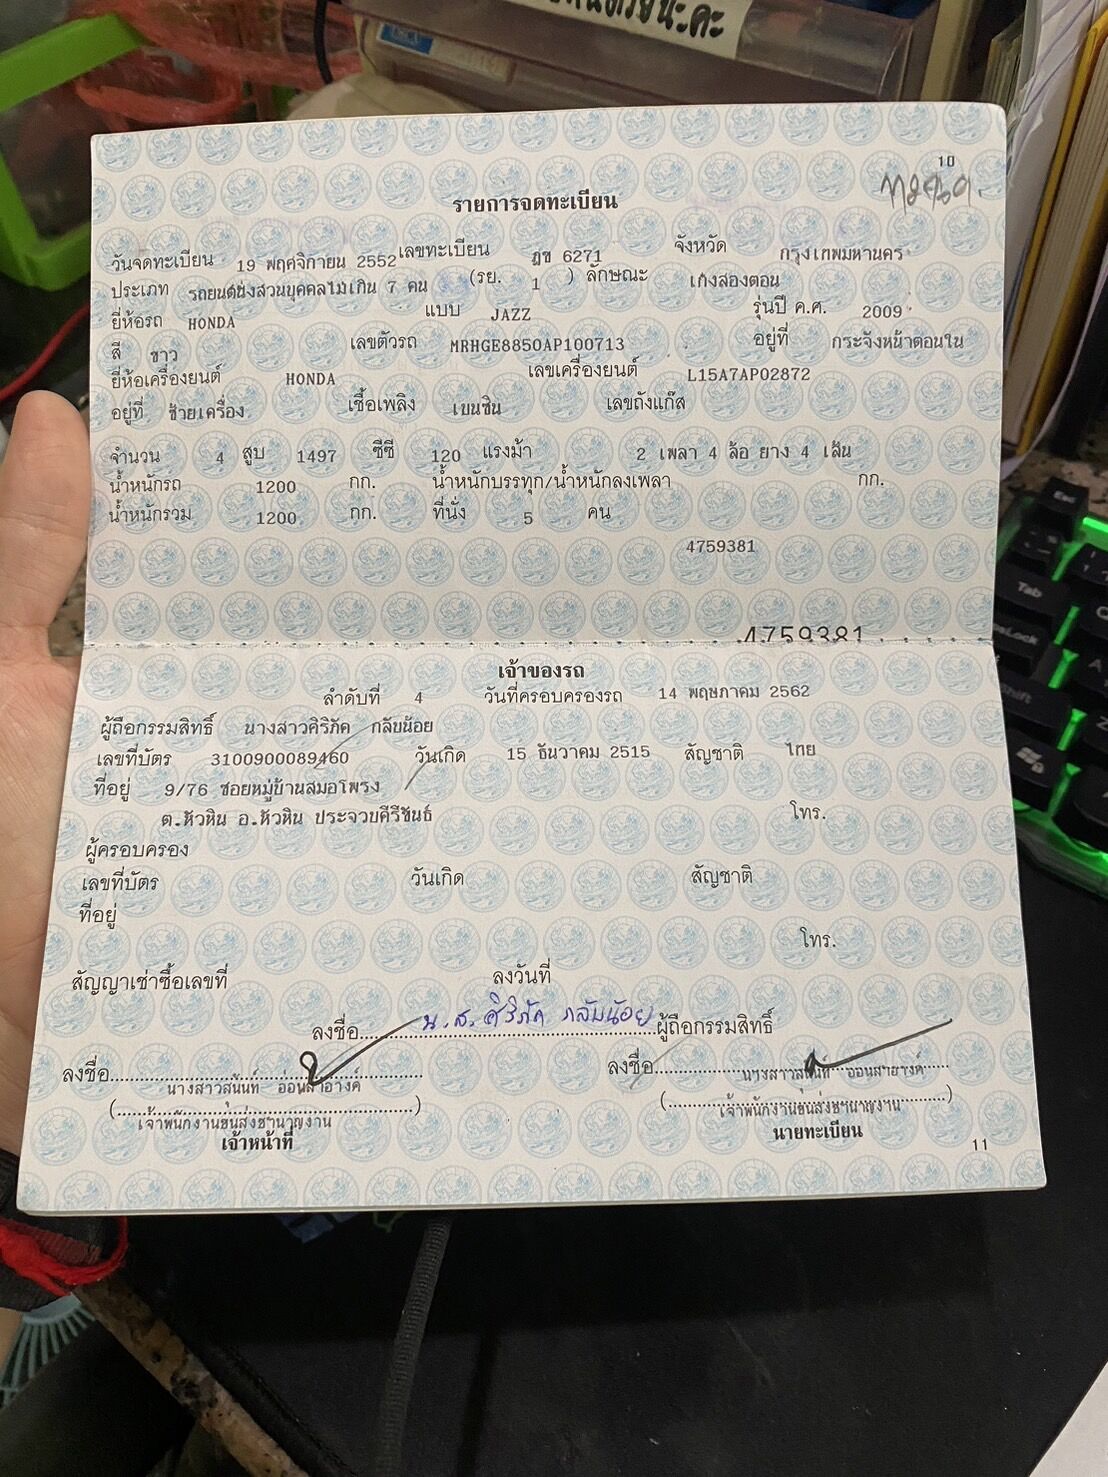 กันด้วยนะคะ
10
รายการจดทะเบียน
วันจดทะเบียน 19 พฤศจิกายน 2552 เลขทะเบียน ฎข 6271 จังหวัด กรุงเทพมหานคร
ประเภท รถยนต์นั่งส่วนบุคคลไม่เกิน 7 คน (รย. 1 ) ลักษณะ เก๋งสองตอน
ยี่ห้อรถ HONDA แบบ JAZZ รุ่นปี ค.ศ. 2009
สี ขาว เลขตัวรถ MRHGE8850AP100713 อยู่ที่ กระจังหน้าตอนใน
ยี่ห้อเครื่องยนต์ HONDA เลขเครื่องยนต์ L15A7AP02872
อยู่ที่ ซ้ายเครื่อง เชื้อเพลิง เบนซิน เลขถังแก๊ส
จำนวน 4 สูบ 1497 ซีซี 120 แรงม้า 2 เพลา 4 ล้อ ยาง 4 เส้น
น้ำหนักรถ 1200 กก. น้ำหนักบรรทุก/น้ำหนักลงเพลา กก.
น้ำหนักรวม 1200 กก. ที่นั่ง 5 คน
4759381
4759381
เจ้าของรถ
ลำดับที่ 4 วันที่ครอบครองรถ 14 พฤษภาคม 2562
ผู้ถือกรรมสิทธิ์ นางสาวศิริภัค กลับน้อย
เลขที่บัตร 3100900089460 วันเกิด 15 ธันวาคม 2515 สัญชาติ ไทย
ที่อยู่ 9/76 ซอยหมู่บ้านสมอโพรง
ต.หัวหิน อ.หัวหิน ประจวบคีรีขันธ์ โทร.
ผู้ครอบครอง
เลขที่บัตร วันเกิด สัญชาติ
ที่อยู่
โทร.
สัญญาเช่าซื้อเลขที่ ลงวันที่
ลงชื่อ น.ส.ศิริภัค กลับน้อย ผู้ถือกรรมสิทธิ์
ลงชื่อ ลงชื่อ
นางสาวสุนันท์ อ่อนสำอางค์ นางสาวสุนันท์ อ่อนสำอางค์
เจ้าพนักงานขนส่งชำนาญงาน เจ้าพนักงานขนส่งชำนาญงาน
เจ้าหน้าที่ นายทะเบียน
11
Esc
Tab
Shift